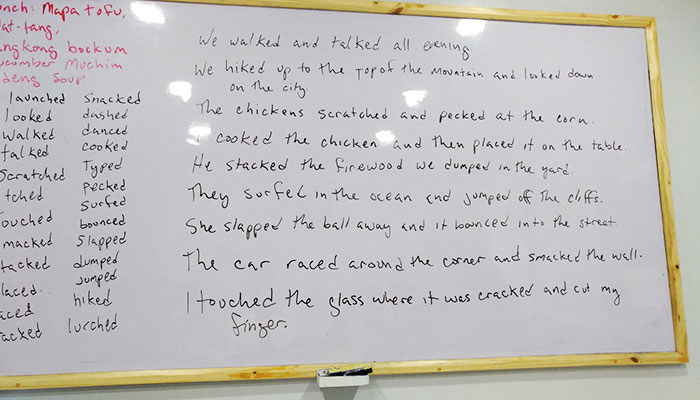 unch: Mapa tofu,
at-tang,
ngkong bockum
ucumber Muchim
deng Soup
launched Snacked
looked dashed
walked danced
talked cooked
Scratched Typed
tched Pecked
Touched Surfed
macked bounced
tacked Slapped
laced dumped
aced jumped
acked hiked
lurched
We walked and talked all evening.
We hiked up to the top of the mountain and looked down
on the city.
The chickens scratched and pecked at the corn.
I cooked the chicken and then placed it on the table.
He stacked the firewood we dumped in the yard.
They surfed in the ocean and jumped off the cliffs.
She slapped the ball away and it bounced into the street.
The car raced around the corner and smacked the wall.
I touched the glass where it was cracked and cut my
finger.